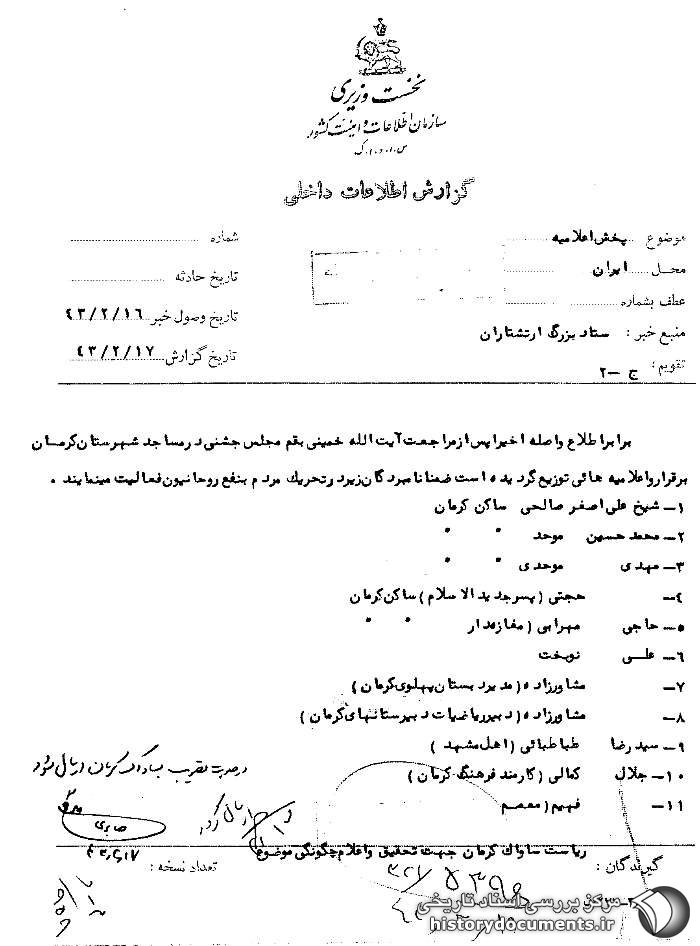 نخست وزیری
سازمان اطلاعات و امنیت کشور
س.ا.و.ا.ک
گزارش اطلاعات داخلی
موضوع پخش اعلامیه
شماره
محل ایران
تاریخ حادثه
عطف بشماره
تاریخ وصول خبر ۴۳/۲/۱۶
منبع خبر : ستاد بزرگ ارتشتاران
تاریخ گزارش ۴۳/۲/۱۷
تقویم : ج -۲
برابر اطلاع واصله اخیرا پس از مراجعت آیت الله خمینی بقم مجلس جشنی در مساجد شهرستان کرمان
برقرار و اعلامیه هائی توزیع گردیده است ضمنا نامبردگان زیر در تحریک مردم بنفع روحانیون فعالیت مینمایند .
۱- شیخ علی اصغر صالحی ساکن کرمان
۲- محمد حسین موحد " "
۳- مهدی موحدی " "
۴- حجتی (پسر جدید الاسلام) ساکن کرمان
۵- حاجی مهرابی (مغازه دار " "
۶- علی نوبخت
۷- مشاورزاده (مدیر دبستان پهلوی کرمان)
۸- مشاورزاده (دبیر ریاضیات دبیرستانهای کرمان)
۹- سید رضا طباطبائی (اهل مشهد)
۱۰- جلال کمالی (کارمند فرهنگ کرمان)
۱۱- فهیم (معمم
در صورت تصویب بساواک کرمان ارسال شود
صابری
۴۳،۲،۱۷
ارسال گردد
گیرندگان : ریاست ساواک کرمان جهت تحقیق و اعلام چگونگی موضوع
تعداد نسخه :
مرکز بررسی اسناد تاریخی
historydocuments.ir